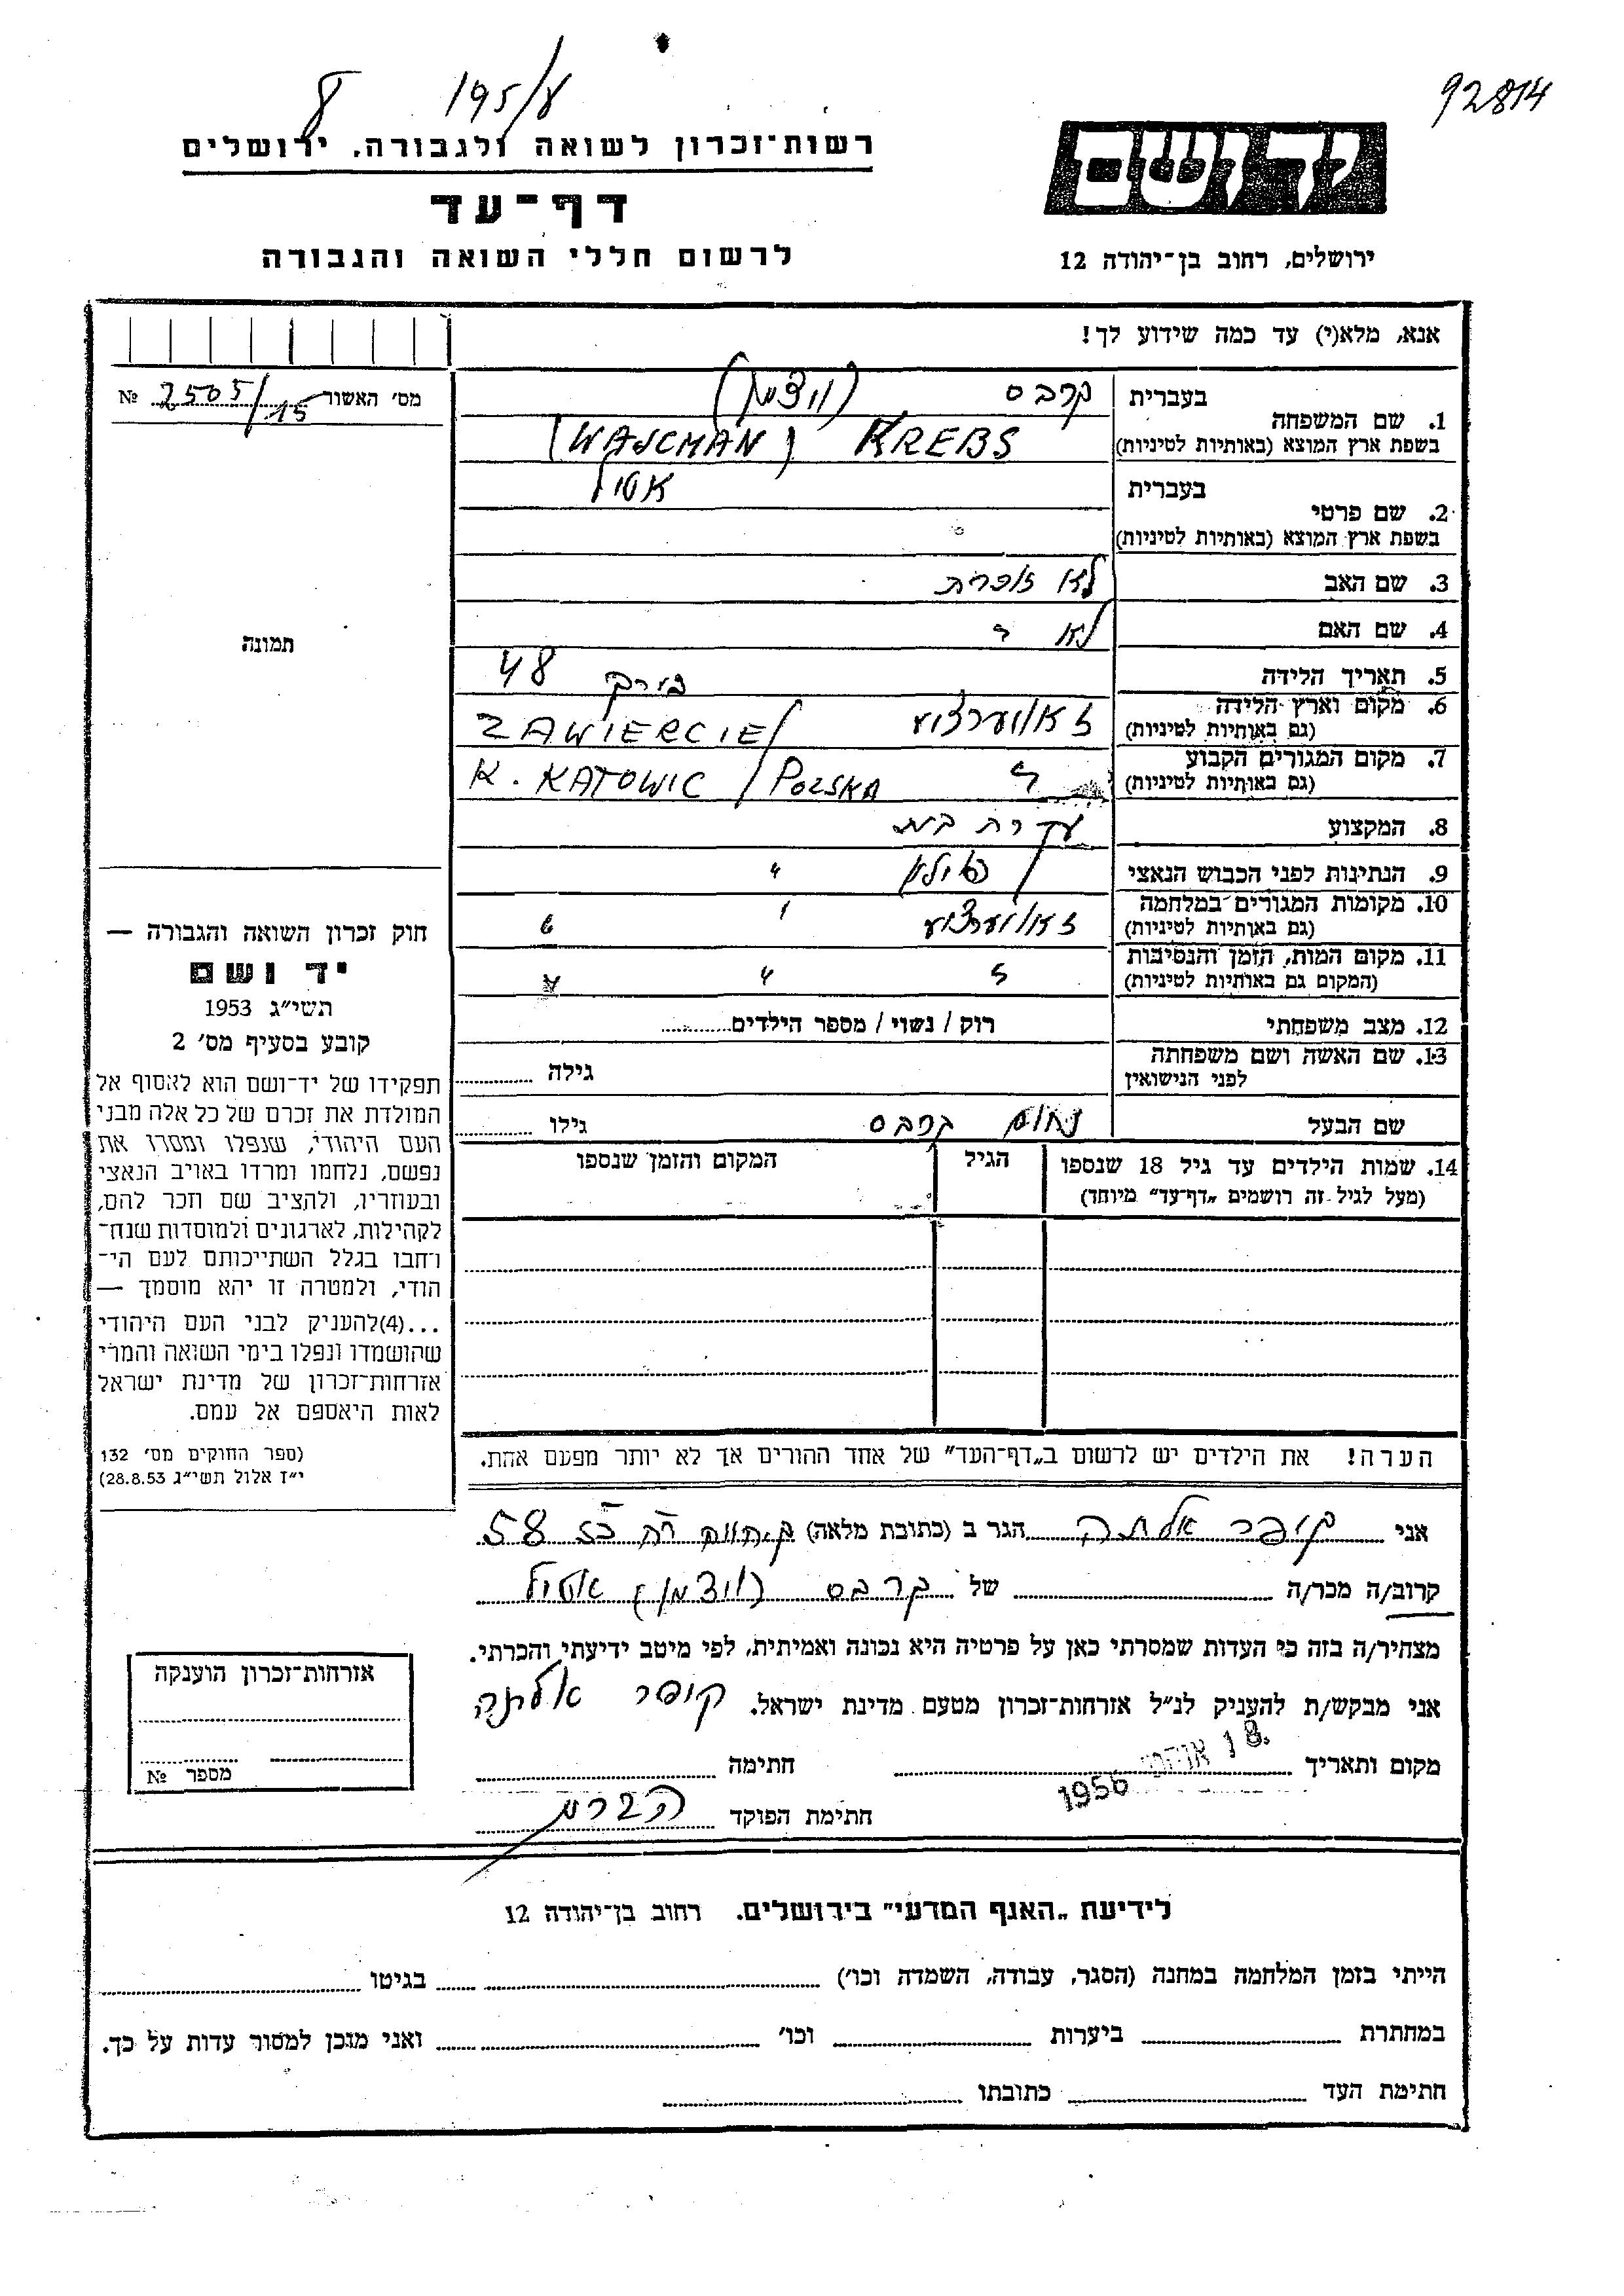 92814
195/8 8
רשות־זכרון לשואה ולגבורה, ירושלים
יד ושם
דף־עד
לרשום חללי השואה והגבורה
ירושלים, רחוב בן־יהודה 12
אנא, מלא(י) עד כמה שידוע לך!
מס׳ האשור 2505/15 №
1. שם המשפחה
בעברית קרבס (ויצמן)
בשפת ארץ המוצא (באותיות לטיניות) KREBS (WAJCMAN)
2. שם פרטי
בעברית אטיל
בשפת ארץ המוצא (באותיות לטיניות)
3. שם האב לא זוכרת
4. שם האם לא "
5. תאריך הלידה 48
6. מקום וארץ הלידה (גם באותיות לטיניות) זאוויערצע ZAWIERCIE/
7. מקום המגורים הקבוע (גם באותיות לטיניות) " K. KATOWIC / POLSKA
8. המקצוע עקרת בית
9. הנתינות לפני הכבוש הנאצי פולנ "
10. מקומות המגורים במלחמה (גם באותיות לטיניות) זאוויערצע
11. מקום המות, הזמן והנסיבות (המקום גם באותיות לטיניות) " " "
12. מצב משפחתי רוק / נשוי / מספר הילדים
13. שם האשה ושם משפחתה לפני הנישואין גילה
שם הבעל נחום קרבס גילו
14. שמות הילדים עד גיל 18 שנספו (מעל לגיל זה רושמים „דף־עד״ מיוחד) הגיל המקום והזמן שנספו
הערה! את הילדים יש לרשום ב„דף־העד״ של אחד ההורים אך לא יותר מפעם אחת.
תמונה
חוק זכרון השואה והגבורה —
יד ושם
תשי״ג 1953
קובע בסעיף מס׳ 2
תפקידו של יד־ושם הוא לאסוף אל
המולדת את זכרם של כל אלה מבני
העם היהודי, שנפלו ומסרו את
נפשם, נלחמו ומרדו באויב הנאצי
ובעוזריו, ולהציב שם וזכר להם,
לקהילות, לארגונים ולמוסדות שנח־
רבו בגלל השתייכותם לעם הי־
הודי, ולמטרה זו יהא מוסמך —
...(4)להעניק לבני העם היהודי
שהושמדו ונפלו בימי השואה והמרי
אזרחות־זכרון של מדינת ישראל
לאות היאספם אל עמם.
(ספר החוקים מס׳ 132
י״ז אלול תשי״ג 28.8.53)
אני קופר אלתה הגר ב (כתובת מלאה) 58
קרוב/ה מכר/ה של קרבס (ויצמן) אטיל
מצהיר/ה בזה כי העדות שמסרתי כאן על פרטיה היא נכונה ואמיתית, לפי מיטב ידיעתי והכרתי.
אני מבקש/ת להעניק לנ״ל אזרחות־זכרון מטעם מדינת ישראל. קופר אלתה
מקום ותאריך 18. 1956 חתימה
חתימת הפוקד
אזרחות־זכרון הוענקה
מספר №
לידיעת „האגף המדעי״ בירושלים. רחוב בן־יהודה 12
הייתי בזמן המלחמה במחנה (הסגר, עבודה, השמדה וכו׳) בגיטו
במחתרת ביערות וכו׳ ואני מוכן למסור עדות על כך.
חתימת העד כתובתו